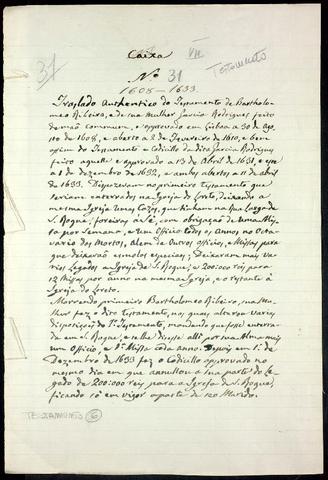 37
Caixa
VII
Testamento
Nº 31
1608 - 1633
Traslado Authentico do Testamento de Bartholo-
meo Ribeiro, e de sua Mulher Garcia Rodrigues feito
de mão commum, e approvado em Lisboa a 30 de Agos
to de 1608, e aberto a 2 de Fevereiro de 1610, e bem
assim do Testamento e Codicillo da dita Garcia Rodrigues
feito aquelle e approvado a 13 de Abril de 1631, e este
a 1 de dezembro de 1632, e ambos abertos a 11 de abril
de 1633. Dispozeram no primeiro testamento que
seriam enterrados na Igreja do Loreto, deixando a
mesma Igreja humas Cazas, que tinham na Rua Larga de
S. Roque, foreiras á Sé, com obrigação de huma Mis
sa por Semana, e hum Officio todos os Annos no Octa-
vario dos Mortos, alem de outros Officios, e Missas para
que deixarão esmolas especiaes; deixaram mais va-
rios Legados a Igreja de S. Roque, e 200:000 reis para
12 Missas por anno na mesma Igreja, e o restante á
Igreja do Loreto.
Morrendo primeiro Bartholomeo Ribeiro, sua Mu-
lher fez o dito Testamento, no qual alterou varias
disposições do 1º Testamento, mandando que fosse enterra-
da em S. Roque, e se lhe dissesse alli por sua Alma
um Officio, e 1ª Missa cada anno. Depois em 1º de
Dezembro de 1633 fez o Codicillo approvado no
mesmo dia em que annullou a sua parte do Le-
gado de 200:000 reis, para a Igreja de S. Roque,
ficando só em vigor a parte de seu Marido.
TESTAMENTO 6